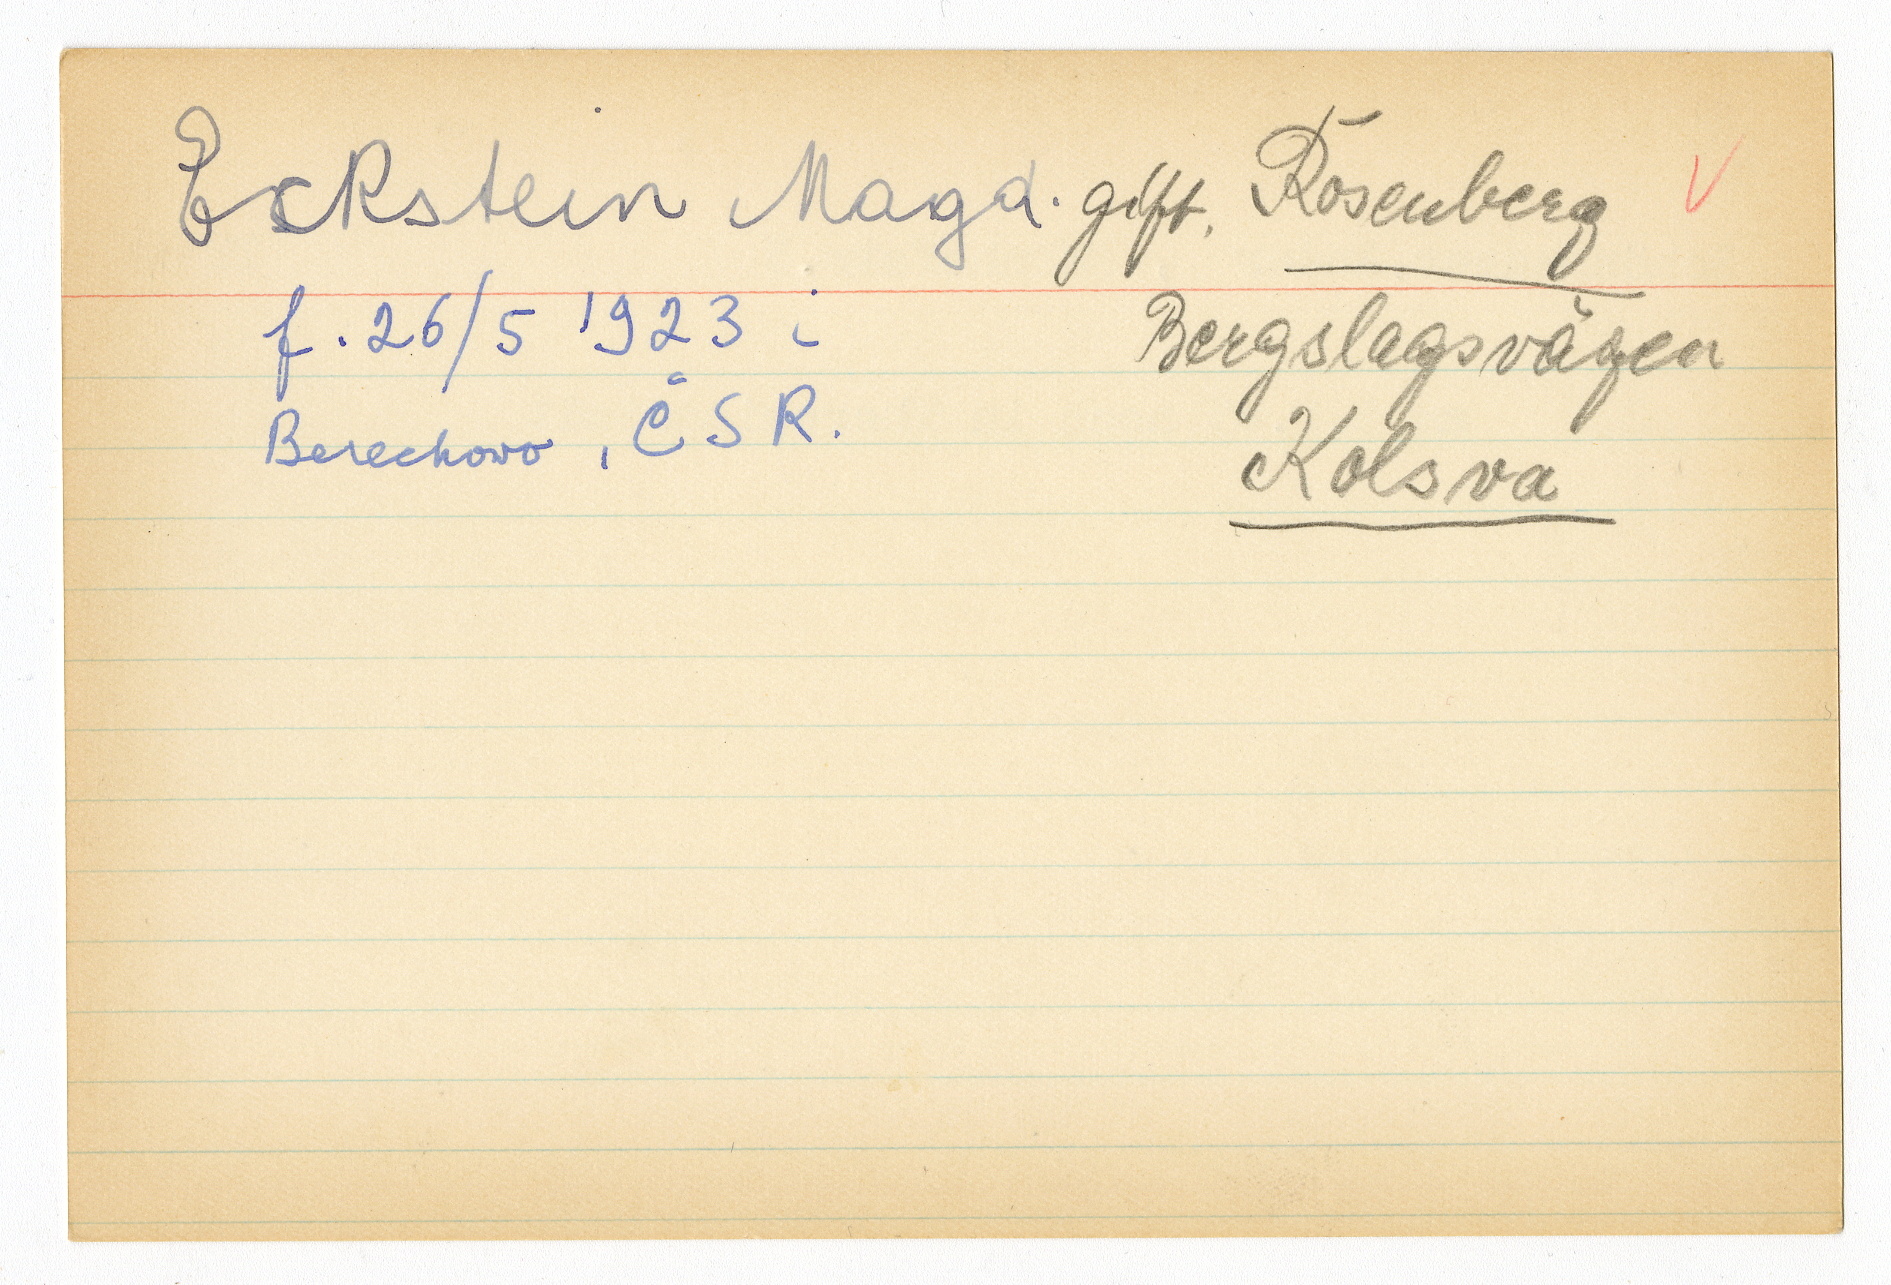 Eckstein Magd. gift. Rosenberg
f. 26/5 1923 i
Berechovo, ČSR.
Bergslagsvägen
Kolsva